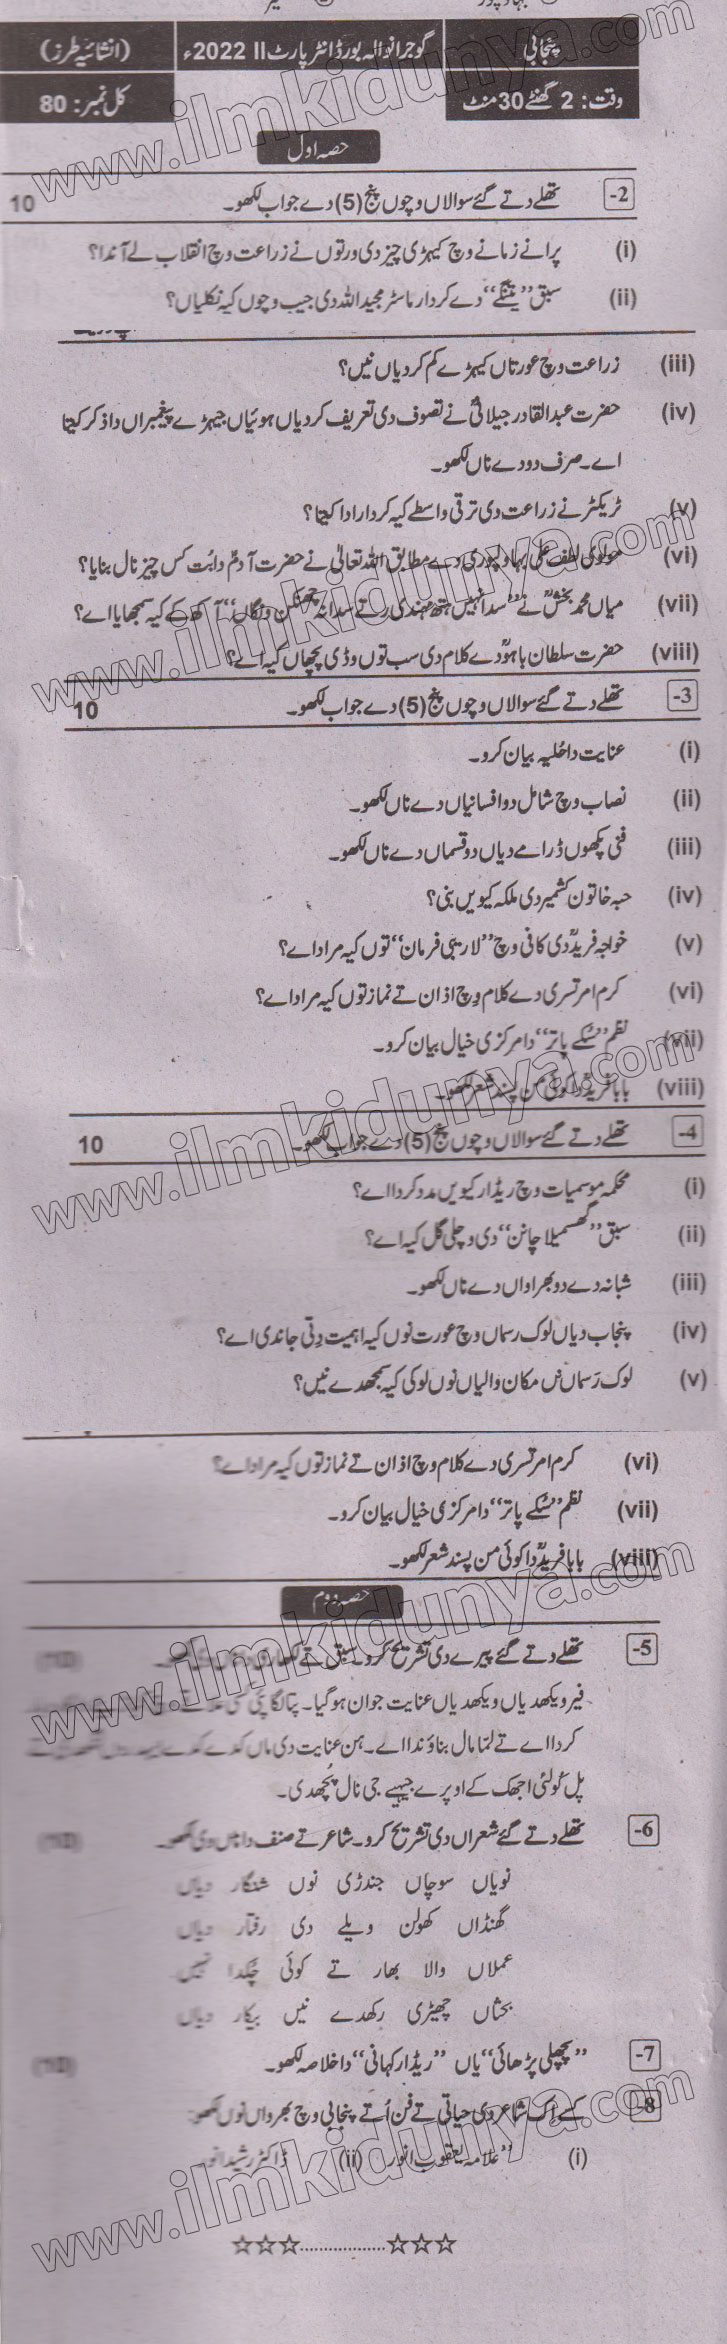 پنجابی
گوجرانوالہ بورڈ انٹر پارٹ II 2022ء
(انشائیہ طرز)
وقت: 2 گھنٹے 30 منٹ
کل نمبر: 80
www.ilmkidunya.com
حصہ اول
-2 تھلے دتے گئے سوالاں وچوں پنج (5) دے جواب لکھو۔ 10
(i) پرانے زمانے وچ کیہڑی چیز دی ورتوں نے زراعت وچ انقلاب لے آندا؟
(ii) سبق ”پتنگے“ دے کردار ماسٹر مجید اللہ دی جیب وچوں کیہ نکلیاں؟
(iii) زراعت وچ عورتاں کیہڑے کم کردیاں نیں؟
(iv) حضرت عبدالقادر جیلانیؒ نے تصوف دی تعریف کردیاں ہوئیاں جیہڑے پیغمبراں دا ذکر کیتا
اے۔ صرف دو دے ناں لکھو۔
(v) ٹریکٹر نے زراعت دی ترقی واسطے کیہ کردار ادا کیتا؟
(vi) مولوی لطف علی بہاولپوری دے مطابق اللہ تعالیٰ نے حضرت آدمؑ دا بت کس چیز نال بنایا؟
(vii) میاں محمد بخشؒ نے ”سدا نہیں ہتھ مہندی رتے سدا نہ چھنکن ونگاں“ آکھ کے کیہ سمجھایا اے؟
(viii) حضرت سلطان باہوؒ دے کلام دی سب توں وڈی پچھاں کیہ اے؟
www.ilmkidunya.com
-3 تھلے دتے گئے سوالاں وچوں پنج (5) دے جواب لکھو۔ 10
(i) عنایت دا حُلیہ بیان کرو۔
(ii) نصاب وچ شامل دو افسانیاں دے ناں لکھو۔
(iii) فنی پکھوں ڈرامے دیاں دو قسماں دے ناں لکھو۔
(iv) حبہ خاتون کشمیر دی ملکہ کیویں بنی؟
(v) خواجہ فریدؒ دی کافی وچ ”لاریبی فرمان“ توں کیہ مراد اے؟
(vi) کرم امرتسری دے کلام وچ اذان تے نماز توں کیہ مراد اے؟
(vii) نظم ”سُکے پاتر“ دا مرکزی خیال بیان کرو۔
(viii) بابا فریدؒ دا کوئی من پسند شعر لکھو۔
www.ilmkidunya.com
-4 تھلے دتے گئے سوالاں وچوں پنج (5) دے جواب لکھو۔ 10
(i) محکمہ موسمیات وچ ریڈار کیویں مدد کردا اے؟
(ii) سبق ”گھسمیلا چانن“ دی وچلی گل کیہ اے؟
(iii) شبانہ دے دو بھراواں دے ناں لکھو۔
(iv) پنجاب دیاں لوک رسماں وچ عورت نوں کیہ اہمیت دِتی جاندی اے؟
(v) لوک رَسماں مکان والیاں نوں لوکی کیہ سمجھدے نیں؟
(vi) کرم امرتسری دے کلام وچ اذان تے نماز توں کیہ مراد اے؟
(vii) نظم ”سُکے پاتر“ دا مرکزی خیال بیان کرو۔
(viii) بابا فریدؒ دا کوئی من پسند شعر لکھو۔
حصہ دوم
www.ilmkidunya.com
-5 تھلے دتے گئے پیرے دی تشریح کرو۔ سبق تے لکھاری دا (10)
فیر ویکھدیاں ویکھدیاں عنایت جوان ہو گیا۔
کردا اے تے لتا مال بناؤندا اے۔ ہن عنایت دی ماں کدے کدے
پل کولئی اجھک کے اوپرے جیہے جی نال پُچھدی۔
-6 تھلے دتے گئے شعراں دی تشریح کرو۔ شاعر تے صنف دا ناں وی لکھو۔ (10)
نویاں سوچاں جندڑی نوں شنگار دیاں
گھنڈاں کھولن ویلے دی رفتار دیاں
عملاں والا بھار تے کوئی چُکدا نہیں
بحثاں چھیڑی رکھدے نیں بیکار دیاں
-7 ”پچھلی پڑھائی“ یاں ”ریڈار کہانی“ دا خلاصہ لکھو۔ (10)
-8 کسے اک شاعر دی حیاتی تے فن اُتے پنجابی وچ بھرواں نوٹ لکھو:
(i) علامہ یعقوب انور (ii) ڈاکٹر رشید انور
www.ilmkidunya.com
☆☆☆..................☆☆☆